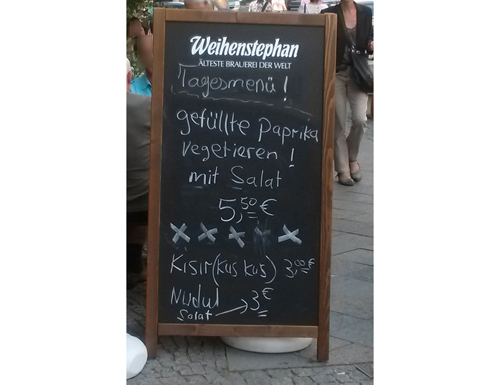 Weihenstephan
ÄLTESTE BRAUEREI DER WELT
Tagesmenü!
gefüllte Paprika
vegetieren!
mit Salat
5,50 €
x x x x x
Kisir (Kus Kus) 3,00 €
Nudul
Salat → 3 €